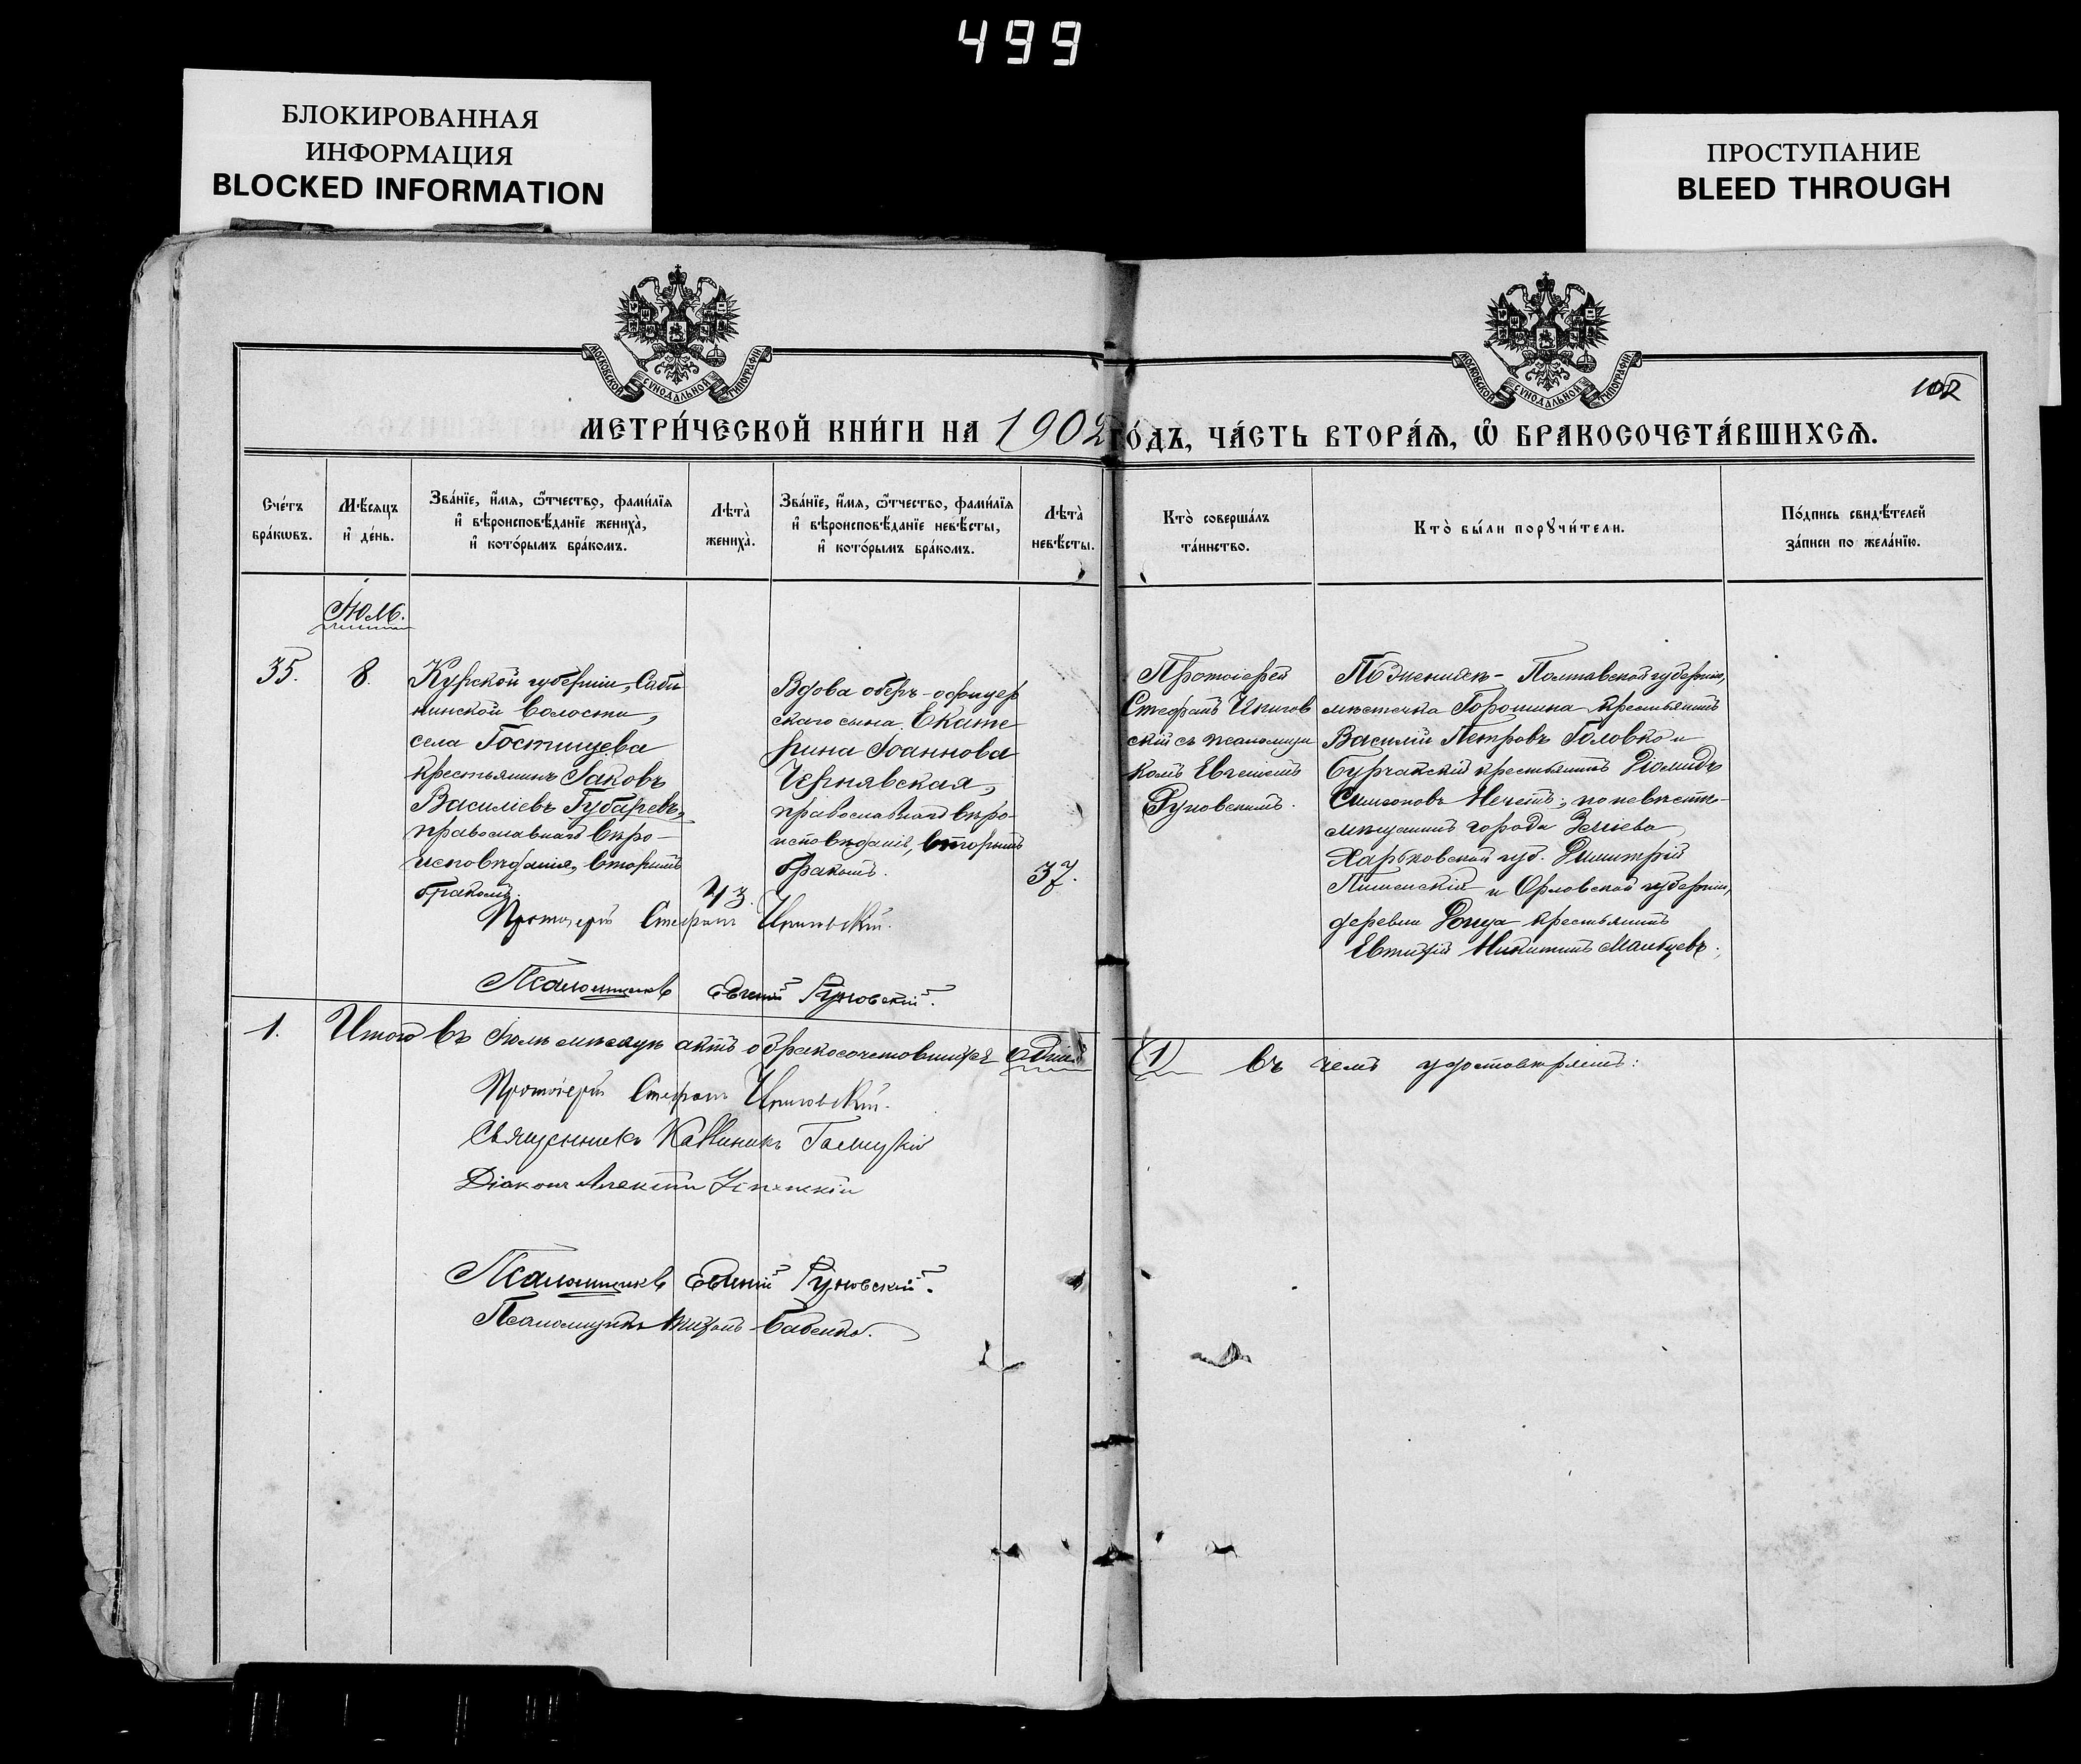 499
БЛОКИРОВАННАЯ
ИНФОРМАЦИЯ
BLOCKED INFORMATION
ПРОСТУПАНИЕ
BLEED THROUGH
МОСКОВСКОЙ СУНОДАЛЬНОЙ ТИПОГРАФІИ
МОСКОВСКОЙ СУНОДАЛЬНОЙ ТИПОГРАФІИ
102
МЕТРИ́ЧЕСКОЙ КНИ́ГИ НА 1902 ГО́ДЪ, ЧА́СТЬ ВТОРА́Ѧ, Ѽ БРАКОСОЧЕТА́ВШИХСѦ.
Сче́тъ
бра́кѡвъ.
Мѣ́сяцъ
и҆ де́нь.
Зва́нїе, и҆́мя, ѻ҆́тчество, фами́лїя
и҆ вѣроисповѣ́данїе жениха̀,
и҆ кото́рымъ бра́комъ.
Лѣта̀
жениха̀.
Зва́нїе, и҆́мя, ѻ҆́тчество, фами́лїя
и҆ вѣроисповѣ́данїе невѣ́сты,
и҆ кото́рымъ бра́комъ.
Лѣта̀
невѣ́сты.
Кто̀ соверша́лъ
та́инство.
Кто̀ бы́ли порꙋчи́тели.
По́дпись свидѣ́телей
за́писи по жела́нїю.
Іюль.
35.
8.
Курской губерніи, Саби
нинской волости,
села Гостищева
крестьянинъ Іаковъ
Василіевъ Губаревъ,
православнаго вѣро-
исповѣданія, вторымъ
бракомъ.
43.
Вдова оберъ-офицер
скаго сына Екате
рина Іоаннова
Чернявская,
православнаго вѣро-
исповѣданія, вторымъ
бракомъ.
37.
Протоіерей
Стефанъ
скій съ псаломщи
комъ Евгеніемъ
Руновскимъ.
По женихѣ - Полтавской губерніи,
мѣстечка Горошина крестьянинъ
Василій Петровъ Головко и
крестьянинъ Діомидъ
Симеоновъ по невѣстѣ-
мѣщанинъ города Зміева
Харьковской губ. Димитрій
и Орловской губерніи,
деревни крестьянинъ
Евтихій Никитинъ
Протоіерей Стефанъ
Псаломщикъ Евгеній Руновскій.
1. Итого въ Іюлѣ мѣсяцѣ актъ о бракосочетавшихся одинъ (1) въ чемъ удостовѣряемъ:
Протоіерей Стефанъ
Священникъ Каллиникъ
Діаконъ Алексій
Псаломщикъ Евгеній Руновскій.
Псаломщикъ Тихонъ Бабенко.